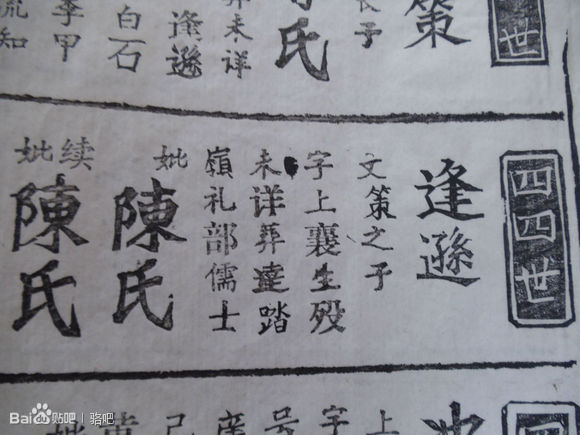 世
策
长子
氏
葬未详
逢遜
白石
季甲
流知
四四世
逢遜
文策之子
字上襄生殁
未详葬達踏
嶺礼部儒士
妣
陳氏
续妣
陳氏
上
字
号
Bai du 贴吧 | 骆吧